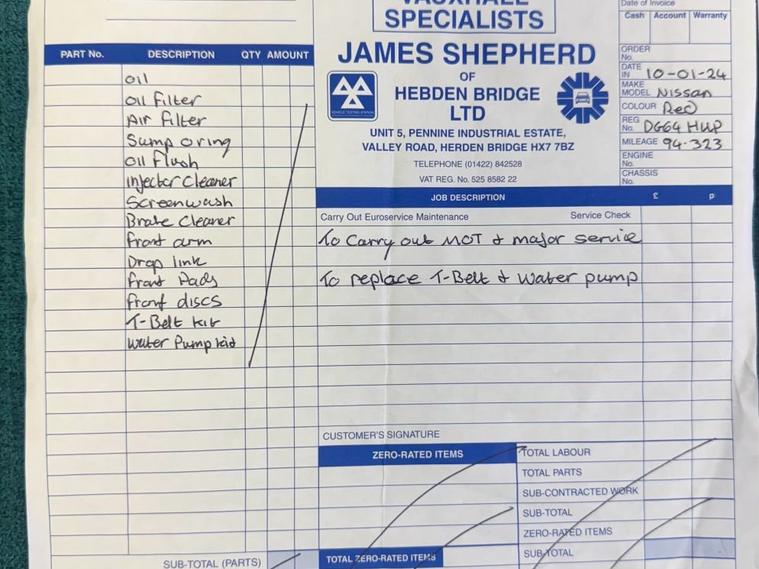 VAUXHALL
SPECIALISTS
JAMES SHEPHERD
OF
HEBDEN BRIDGE
LTD
UNIT 5, PENNINE INDUSTRIAL ESTATE,
VALLEY ROAD, HERDEN BRIDGE HX7 7BZ
TELEPHONE (01422) 842528
VAT REG. No. 525 8582 22
Date of Invoice
Cash Account Warranty
ORDER No.
DATE IN 10-01-24
MAKE MODEL Nissan
COLOUR Red
REG No. DG64 HUP
MILEAGE 94-323
ENGINE No.
CHASSIS No.
PART No. DESCRIPTION QTY AMOUNT
Oil
Oil Filter
Air Filter
Sump oring
Oil Flush
Injector Cleaner
Screenwash
Brake Cleaner
Front arm
Drop link
Front Pads
Front discs
T-Belt kit
Water Pump kit
SUB-TOTAL (PARTS)
JOB DESCRIPTION £ p
Carry Out Euroservice Maintenance Service Check
To Carry out MOT & major service
To replace T-Belt & Water pump
CUSTOMER'S SIGNATURE
ZERO-RATED ITEMS
TOTAL ZERO-RATED ITEMS
TOTAL LABOUR
TOTAL PARTS
SUB-CONTRACTED WORK
SUB-TOTAL
ZERO-RATED ITEMS
SUB-TOTAL